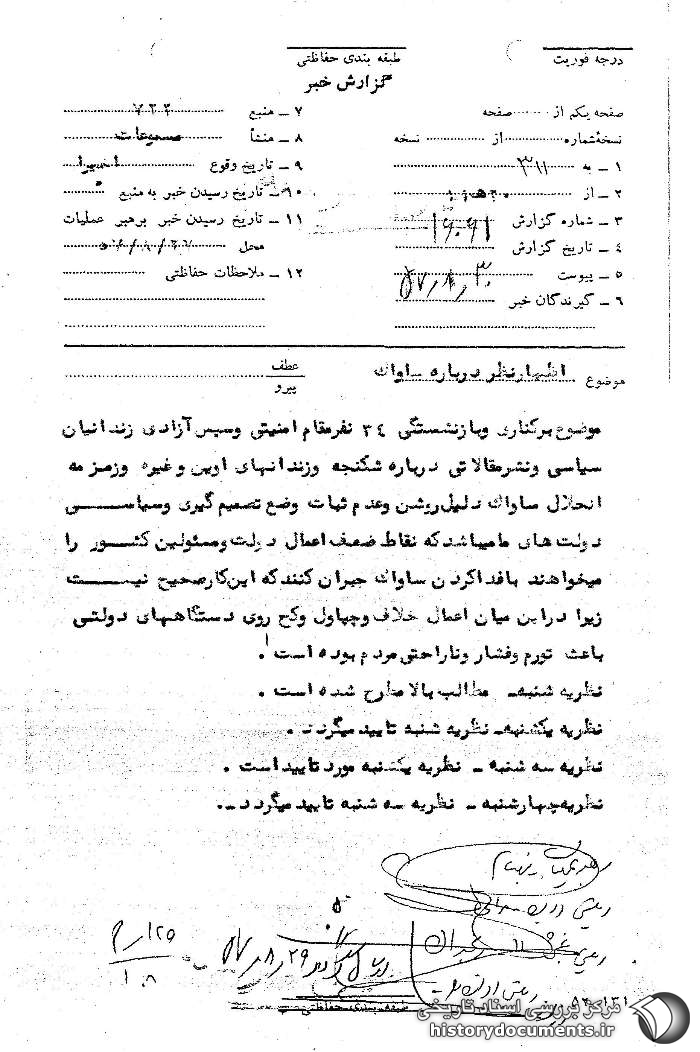 درجه فوریت
طبقه بندی حفاظتی
گزارش خبر
صفحه یکم از صفحه
نسخهٔ شماره از نسخه
۱ ـ به ۳۱۱
۲ ـ از
۳ ـ شماره گزارش
۴ ـ تاریخ گزارش
۵ ـ پیوست ۵۷٫۸٫۳۰
۶ ـ گیرندگان خبر
۷ ـ منبع
۸ ـ منشأ مسموعات
۹ ـ تاریخ وقوع اخیرا
۱۰ ـ تاریخ رسیدن خبر به منبع
۱۱ ـ تاریخ رسیدن خبر برهبر عملیات
محل
۱۲ ـ ملاحظات حفاظتی
موضوع اظهارنظر درباره ساواك
عطف
پیرو
موضوع برکناری وبازنشستگی ۳٤ نفرمقام امنیتی وسپس آزادی زندانیان
سیاسی ونشرمقالاتی درباره شکنجه وزندانهای اوین وغیره وزمزمه
انحلال ساواك دلیل روشن وعدم ثبات وضع تصمیم گیری وسیاسی
دولت های مامیباشدکه نقاط ضعف اعمال دولت ومسئولین کشور را
میخواهند بافداکردن ساواك جبران کنندکه این کارصحیح نیست
زیرا دراین میان اعمال خلاف وچپاول وکج روی دستگاههای دولتی
باعث تورم وفشار وناراحتی مردم بوده است .
نظریه شنبه ـ مطالب بالا مطرح شده است .
نظریه یکشنبه ـ نظریه شنبه تایید میگردد .
نظریه سه شنبه ـ نظریه یکشنبه مورد تایید است .
نظریه چهارشنبه ـ نظریه سه شنبه تایید میگردد .
طبقه بندی حفاظتی
مرکز بررسی اسناد تاریخی
historydocuments.ir